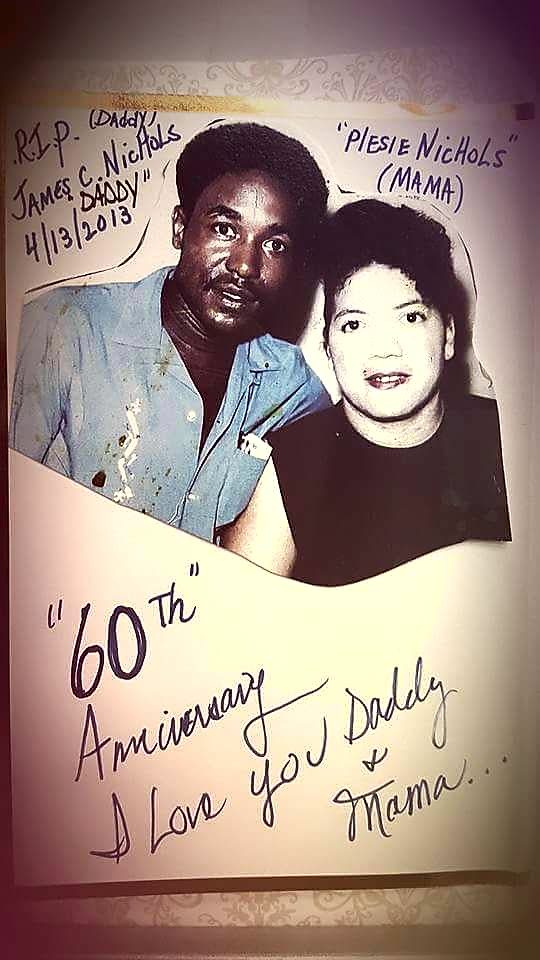 R.I.P. (Daddy)
James C. Nichols
"Daddy"
4/13/2013
"Plesie Nichols"
(Mama)
"60th"
Anniversary
I Love you Daddy
&
Mama...